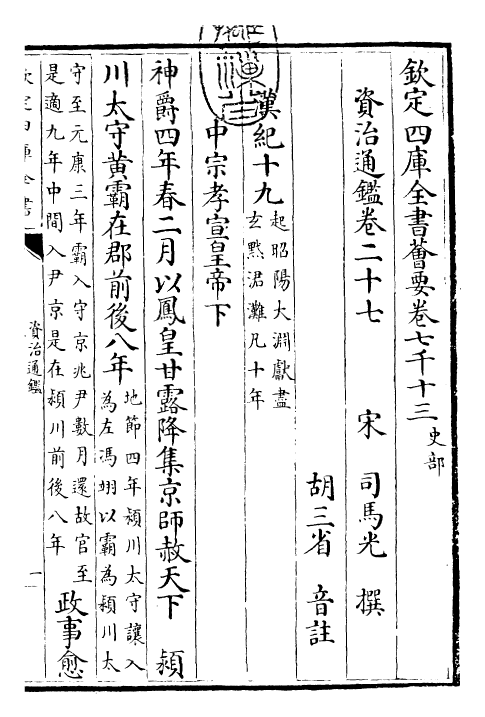 欽定四庫全書薈要卷七千十三 史部
資治通鑑卷二十七
宋 司馬光 撰
胡三省 音註
漢紀十九 起昭陽大淵獻盡
玄黓涒灘凡十年
中宗孝宣皇帝下
神爵四年春二月以鳳皇甘露降集京師赦天下 潁
川太守黃霸在郡前後八年 地節四年潁川太守讓入
為左馮翊以霸為潁川太
守至元康三年霸入守京兆尹數月還故官至
是適九年中間入尹京是在潁川前後八年 政事愈
欽定四庫全書
資治通鑑
一